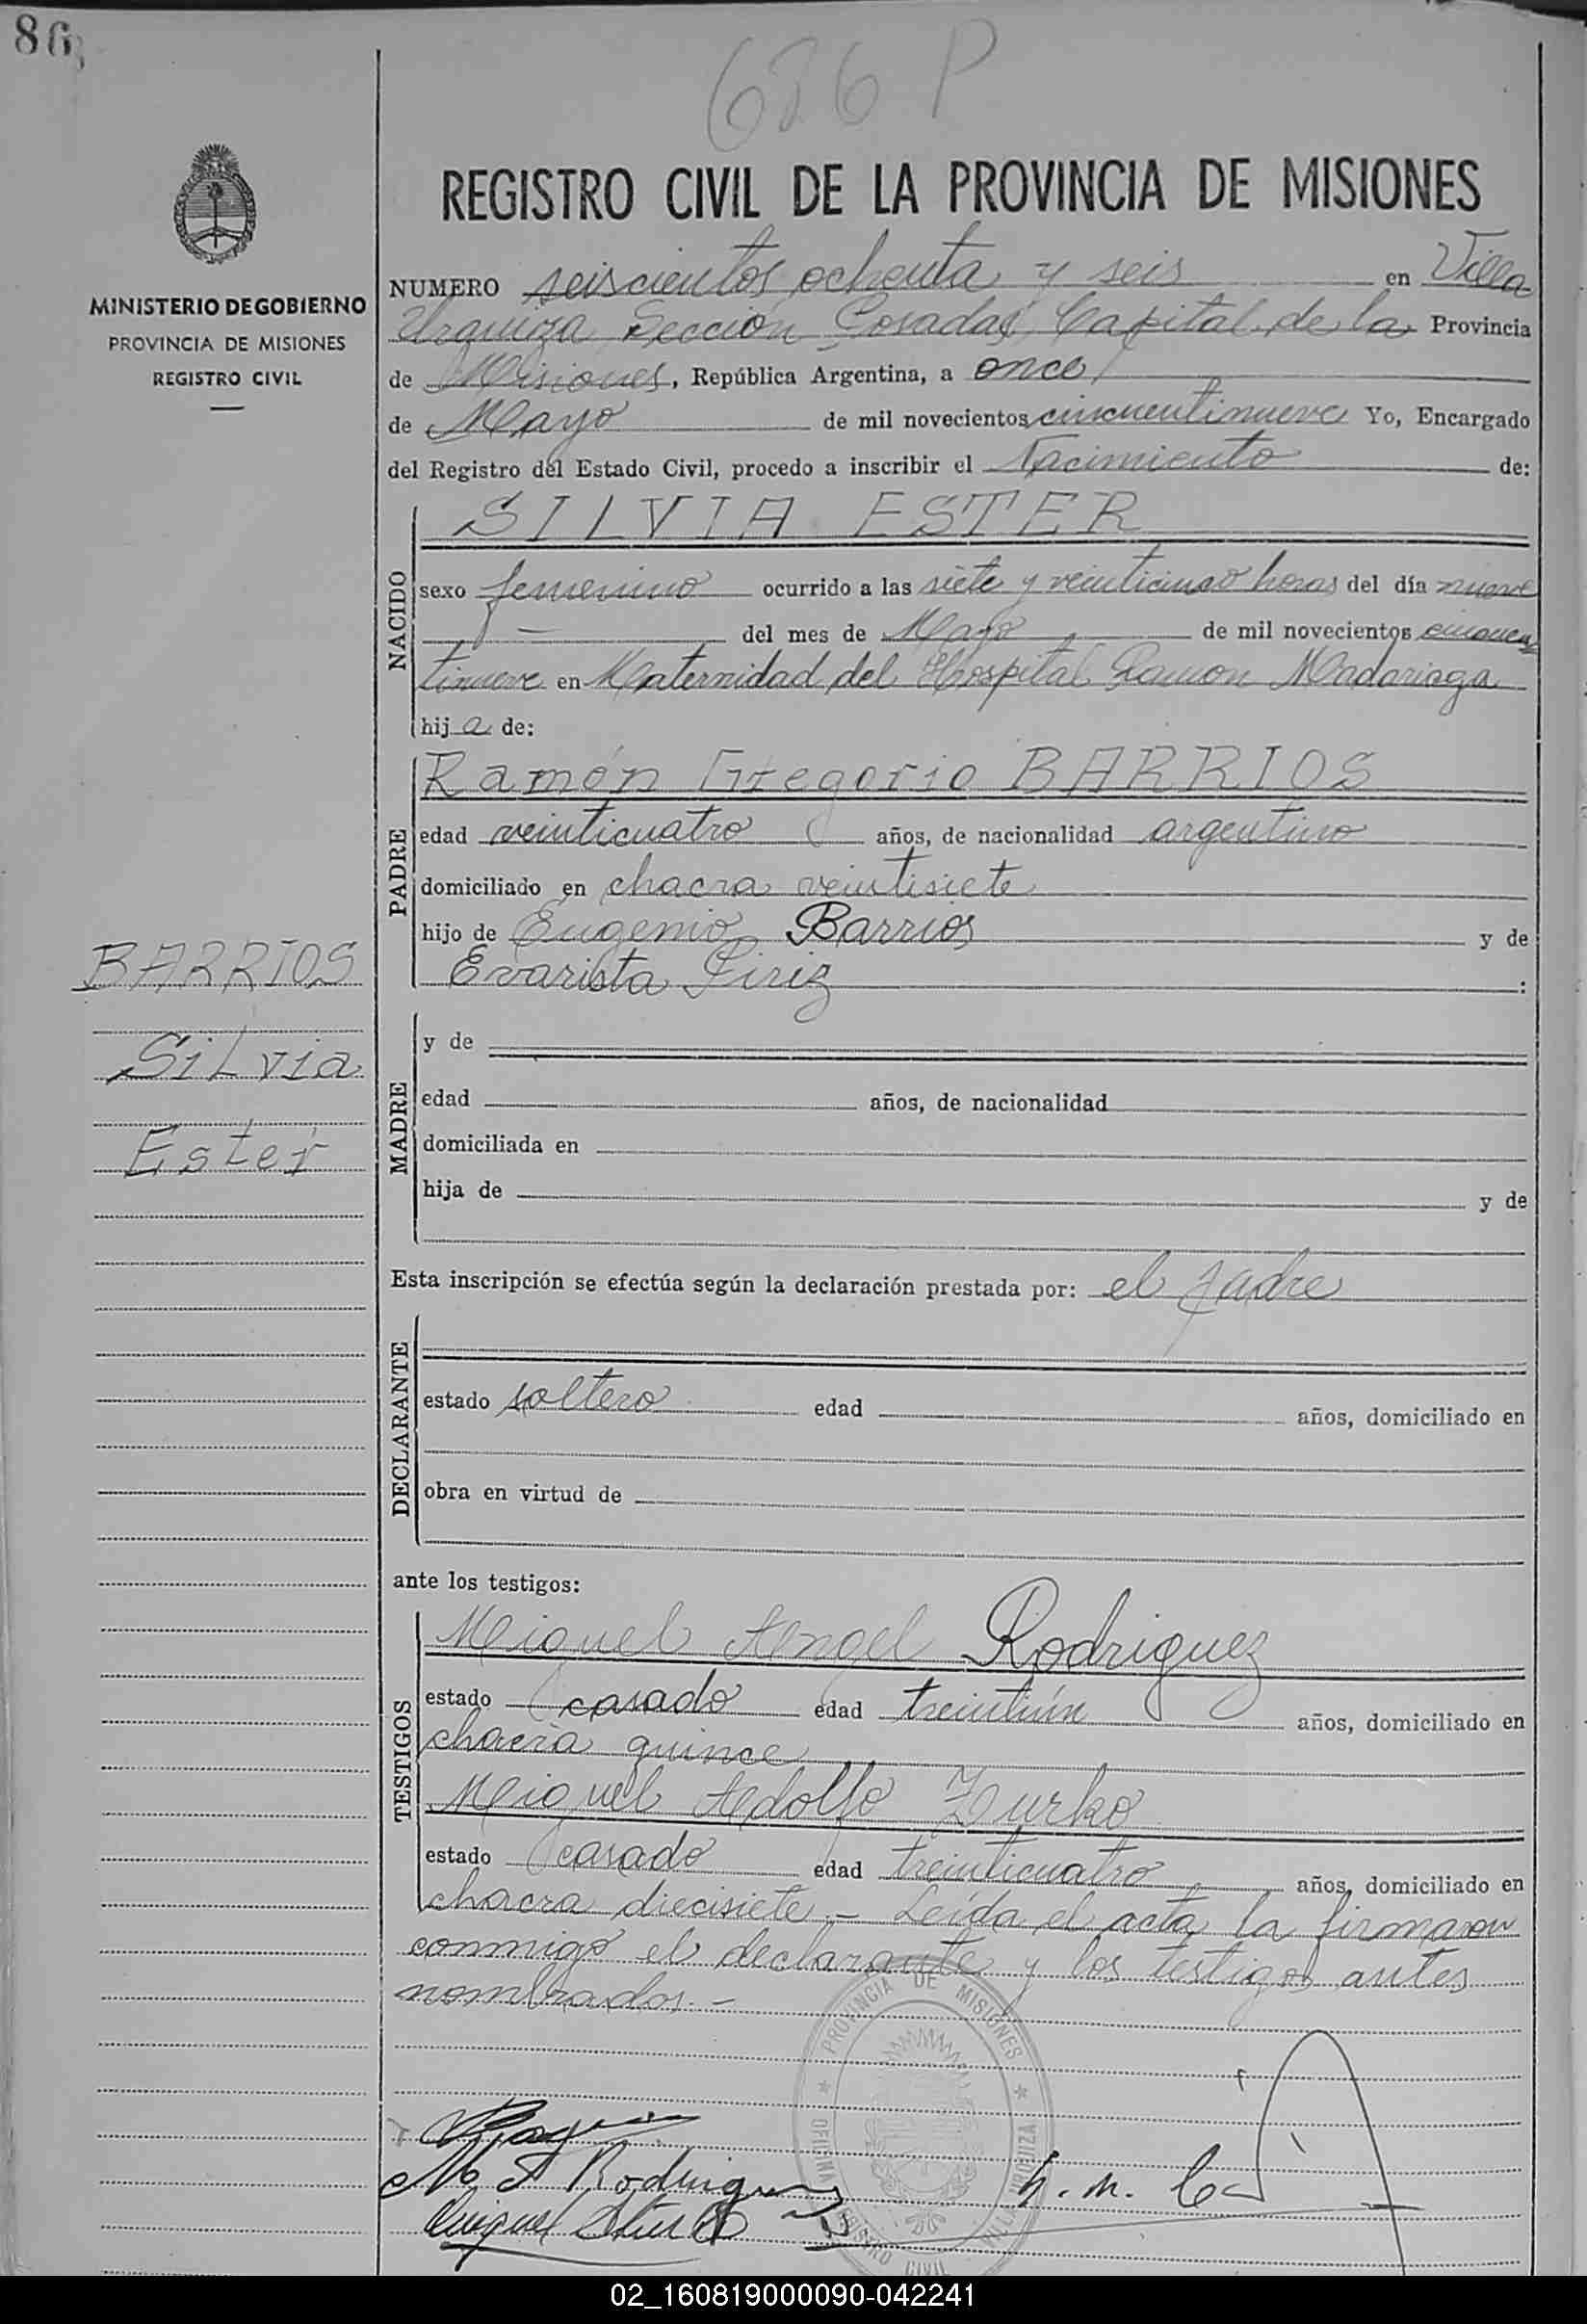 86
686 P
MINISTERIO DE GOBIERNO
PROVINCIA DE MISIONES
REGISTRO CIVIL
REGISTRO CIVIL DE LA PROVINCIA DE MISIONES
NUMERO seiscientos ochenta y seis en Villa
Urquiza Sección Posadas Capital de la Provincia
de Misiones, República Argentina, a once
de Mayo de mil novecientos cincuentinueve Yo, Encargado
del Registro del Estado Civil, procedo a inscribir el Nacimiento de:
SILVIA ESTER
NACIDO
sexo femenino ocurrido a las siete y veinticinco horas del día nueve
— del mes de Mayo de mil novecientos cincuen
tinueve en Maternidad del Hospital Ramon Madariaga
hij a de:
Ramón Gregorio BARRIOS
PADRE
edad veinticuatro años, de nacionalidad argentino
domiciliado en chacra veintisiete
hijo de Eugenio Barrios y de
Evarista Piriz :
BARRIOS
Silvia
Ester
MADRE
y de
edad años, de nacionalidad
domiciliada en
hija de y de
Esta inscripción se efectúa según la declaración prestada por: el padre
DECLARANTE
estado soltero edad años, domiciliado en
obra en virtud de
ante los testigos:
TESTIGOS
Miguel Angel Rodriguez
estado casado edad treintiún años, domiciliado en
chacra quince
Miguel Adolfo Zurko
estado casado edad treinticuatro años, domiciliado en
chacra diecisiete.- Leída el acta, la firmaron
conmigo el declarante y los testigos antes
nombrados.-
PROVINCIA DE MISIONES
OFICINA REGISTRO CIVIL
VILLA URQUIZA
Rodriguez
02_160819000090-042241